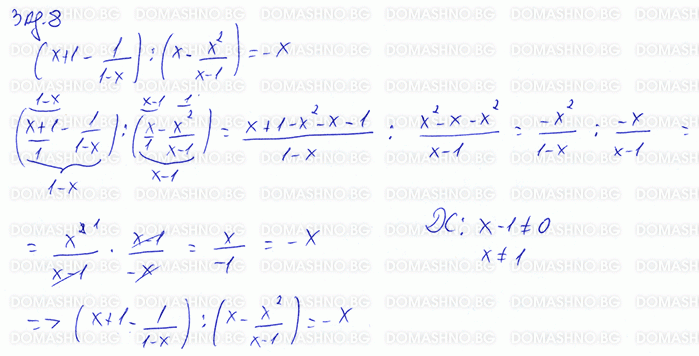 Зад.8
(x+1 - 1/(1-x)) : (x - x²/(x-1)) = -x
1-x x-1 1
((x+1)/1 - 1/(1-x)) : (x/1 - x²/(x-1)) = (x+1-x²-x-1)/(1-x) : (x²-x-x²)/(x-1) = -x²/(1-x) : -x/(x-1) =
1-x x-1
= x²/(x-1) · (x-1)/(-x) = x/(-1) = -x
1
ДС: x-1≠0
x≠1
=> (x+1 - 1/(1-x)) : (x - x²/(x-1)) = -x
DOMASHNO.BG